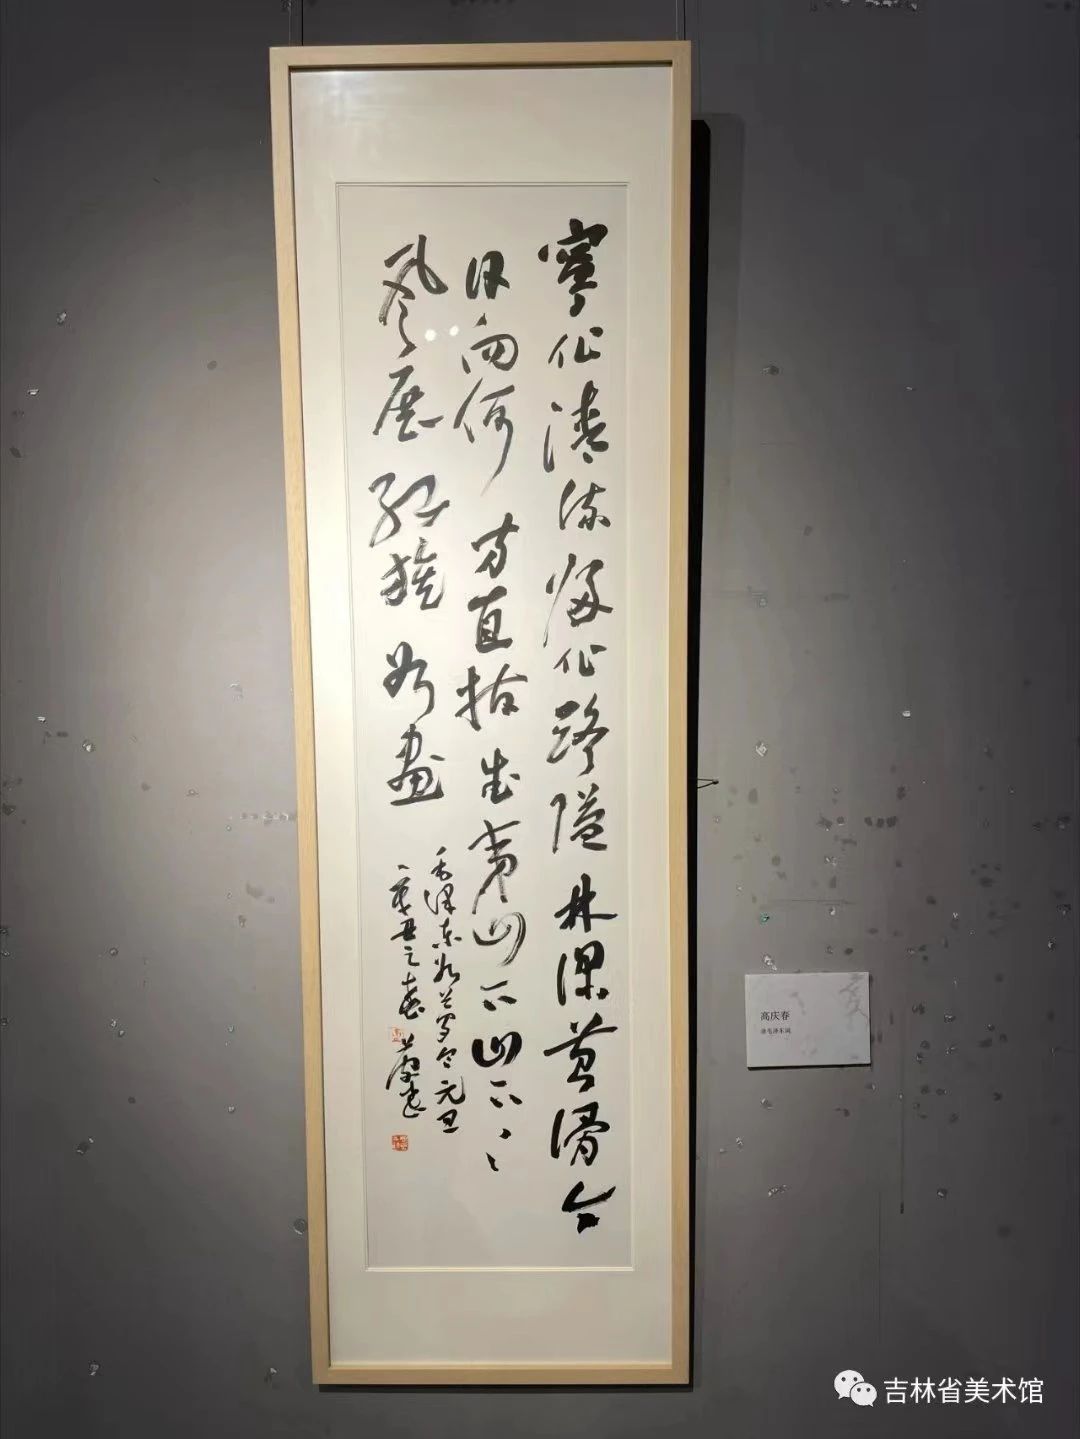 寧化清流归化路隘林深苔滑今
日向何方直指武夷山下山下〻〻
风展红旗如画
毛泽东如梦令元旦
辛丑之春
高庆春
吉林省美术馆